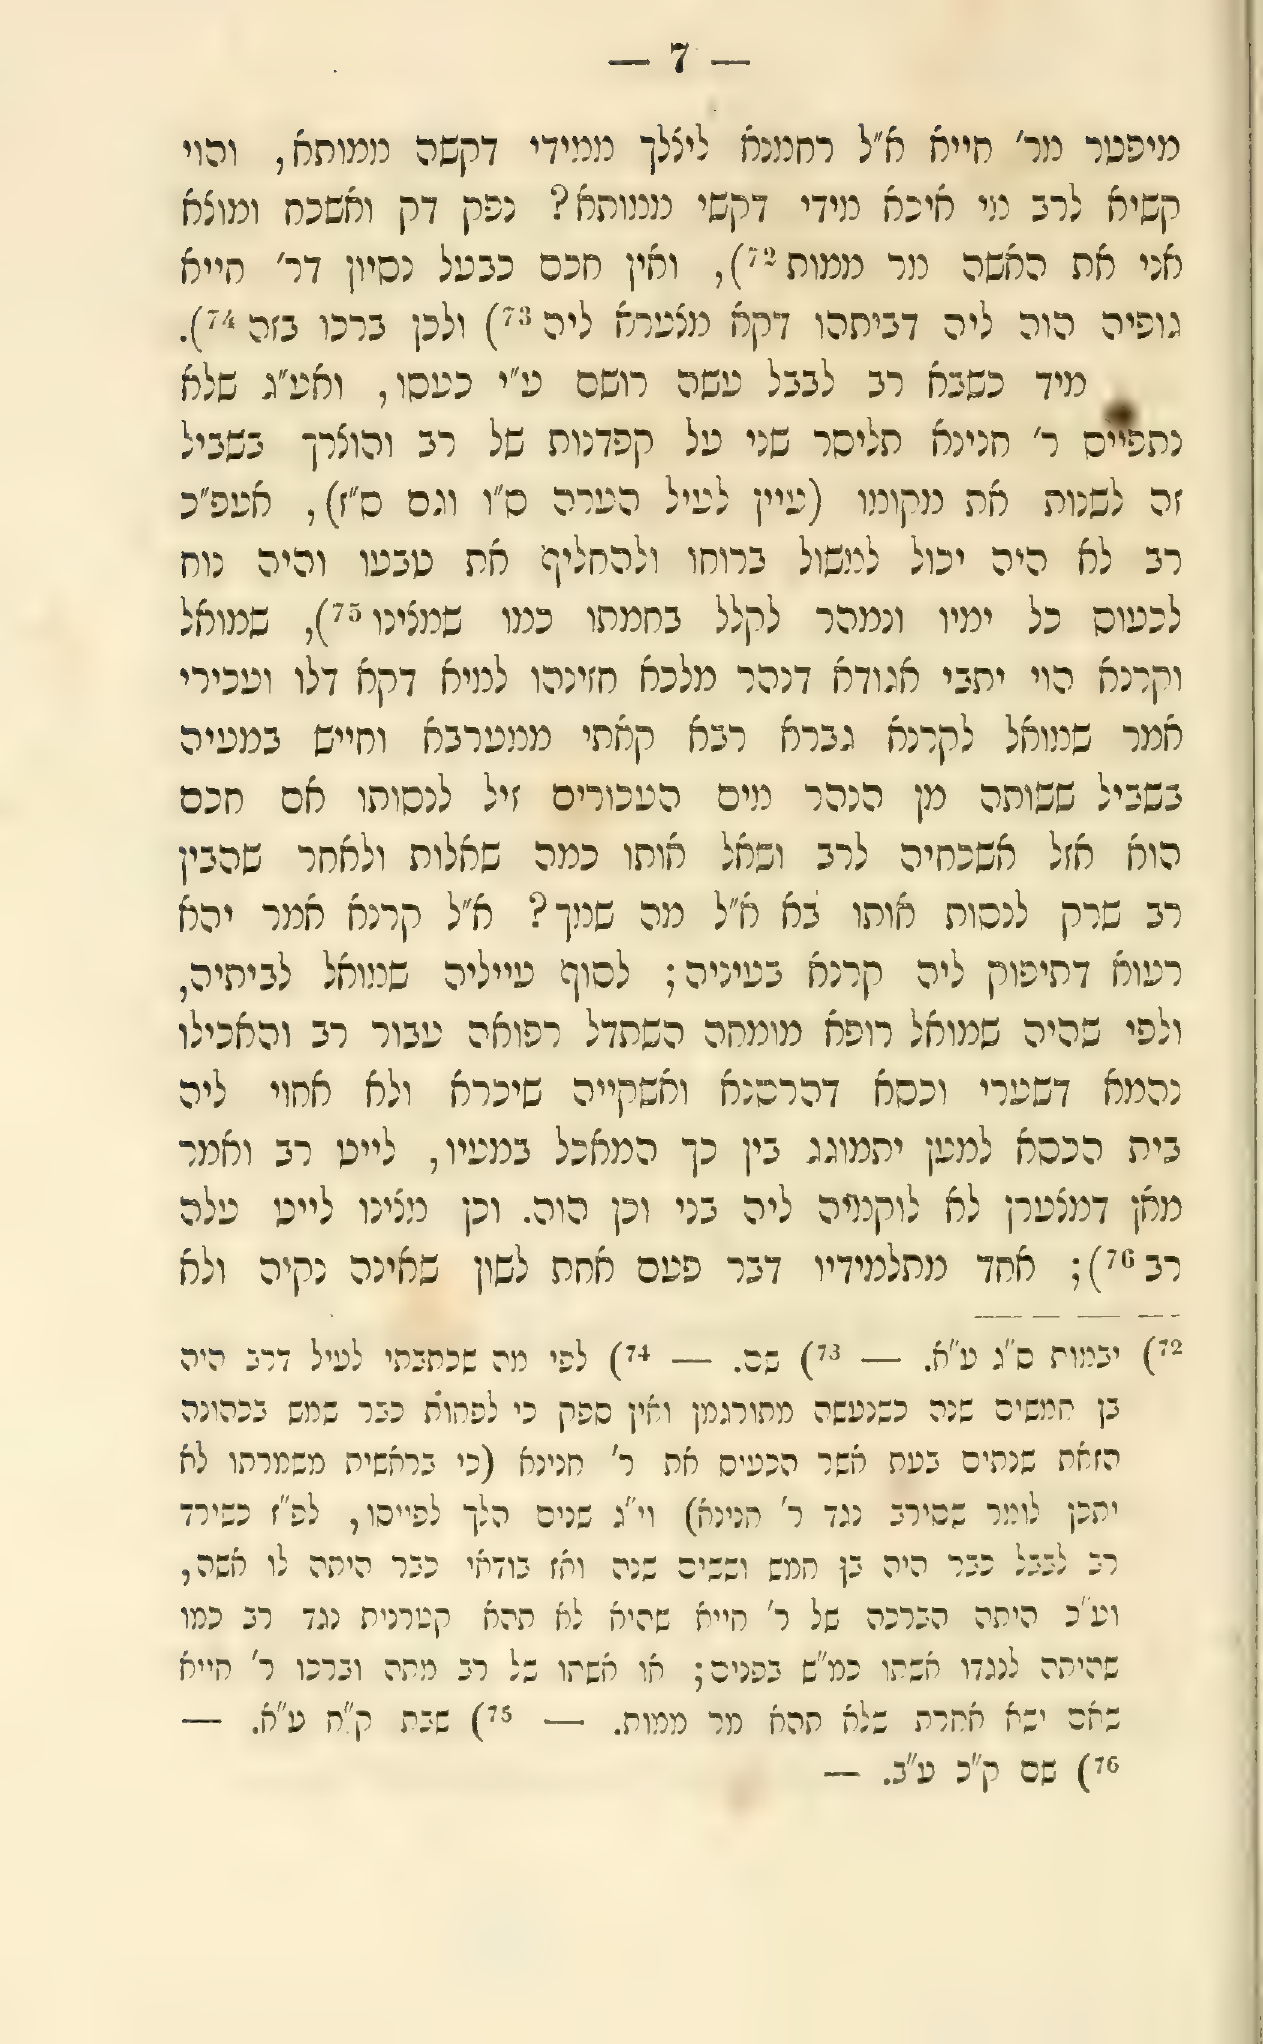 — 7 —
מיפטר מר׳ חייא א״ל רחמנא ליצלך ממידי דקשה ממותא, והוי
קשיא לרב מי איכא מידי דקשי ממותא? נפק דק ואשכח ומוצא
אני את האשה מר ממות 72), ואין חכם כבעל נסיון דר׳ חייא
גופיה הוה ליה דביתהו דקא מצערא ליה 73) ולכן ברכו בזה 74).
מיד כשבא רב לבבל עשה רושם ע״י כעסו, ואע״ג שלא
נתפייס ר׳ חנינא תליסר שני על קפדנות של רב והוצרך בשביל
זה לשנות את מקומו (עיין לעיל הערה ס״ו וגם ס״ז), אעפ״כ
רב לא היה יכול למשול ברוחו ולהחליף את טבעו והיה נוח
לכעוס כל ימיו ונמהר לקלל בחמתו כמו שמצינו 75), שמואל
וקרנא הוי יתבי אגודא דנהר מלכא חזינהו למיא דקא דלו ועכירי
אמר שמואל לקרנא גברא רבא קאתי ממערבא וחייש במעיה
בשביל ששותה מן הנהר מים העכורים זיל לנסותו אם חכם
הוא אזל אשכחיה לרב ושאל אותו כמה שאלות ולאחר שהבין
רב שרק לנסות אותו בא א״ל מה שמך? א״ל קרנא אמר יהא
רעוא דתיפוק ליה קרנא בעיניה; לסוף עייליה שמואל לביתיה,
ולפי שהיה שמואל רופא מומחה השתדל רפואה עבור רב והאכילו
נהמא דשערי וכסא דהרסנא ואשקייה שיכרא ולא אחוי ליה
בית הכסא למען יתמוגג בין כך המאכל במעיו, לייט רב ואמר
מאן דמצערן לא לוקמיה ליה בני וכן הוה. וכן מצינו לייט עלה
רב 76); אחד מתלמידיו דבר פעם אחת לשון שאינה נקיה ולא
72) יבמות ס״ג ע״א. — 73) שם. — 74) לפי מה שכתבתי לעיל דרב היה
בן חמשים שנה כשנעשה מתורגמן ואין ספק כי לפחות כבר שמש בכהונה
הזאת שנתים בעת אשר הכעים את ר׳ חנינא (כי בראשית משמרתו לא
יתכן לומר שסירב נגד ר׳ חנינא) וי״ג שנים הלך לפייסו, לפ״ז כשירד
רב לבבל כבר היה בן חמש וששים שנה ואז בודאי כבר היתה לו אשה,
וע״כ היתה הברכה של ר׳ חייא שהיא לא תהא קטרנית נגד רב כמו
שהיתה לנגדו אשתו כמ״ש בפנים; או אשתו של רב מתה וברכו ר׳ חייא
שאם ישא אחרת שלא תהא מר ממות. — 75) שבת ק״ח ע״א. —
76) שם ק״כ ע״ב. —